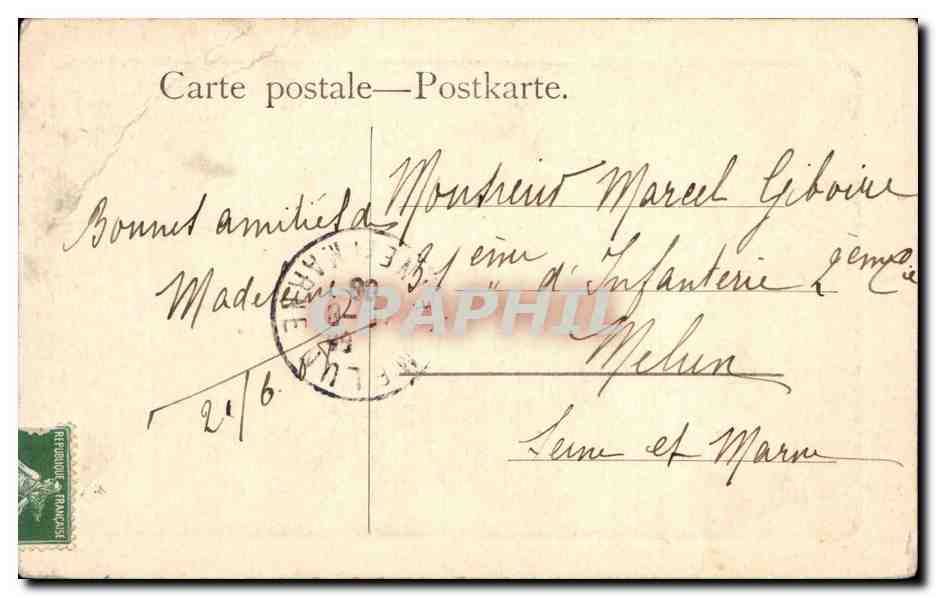 Carte postale—Postkarte.
Bonnes amitiés de
Madeleine
21/6
Monsieur Marcel Giboire
31ème d'Infanterie 2ème Cie
Melun
Seine et Marne
MELUN
SEINE ET MARNE
CPAPHIL
REPUBLIQUE FRANÇAISE